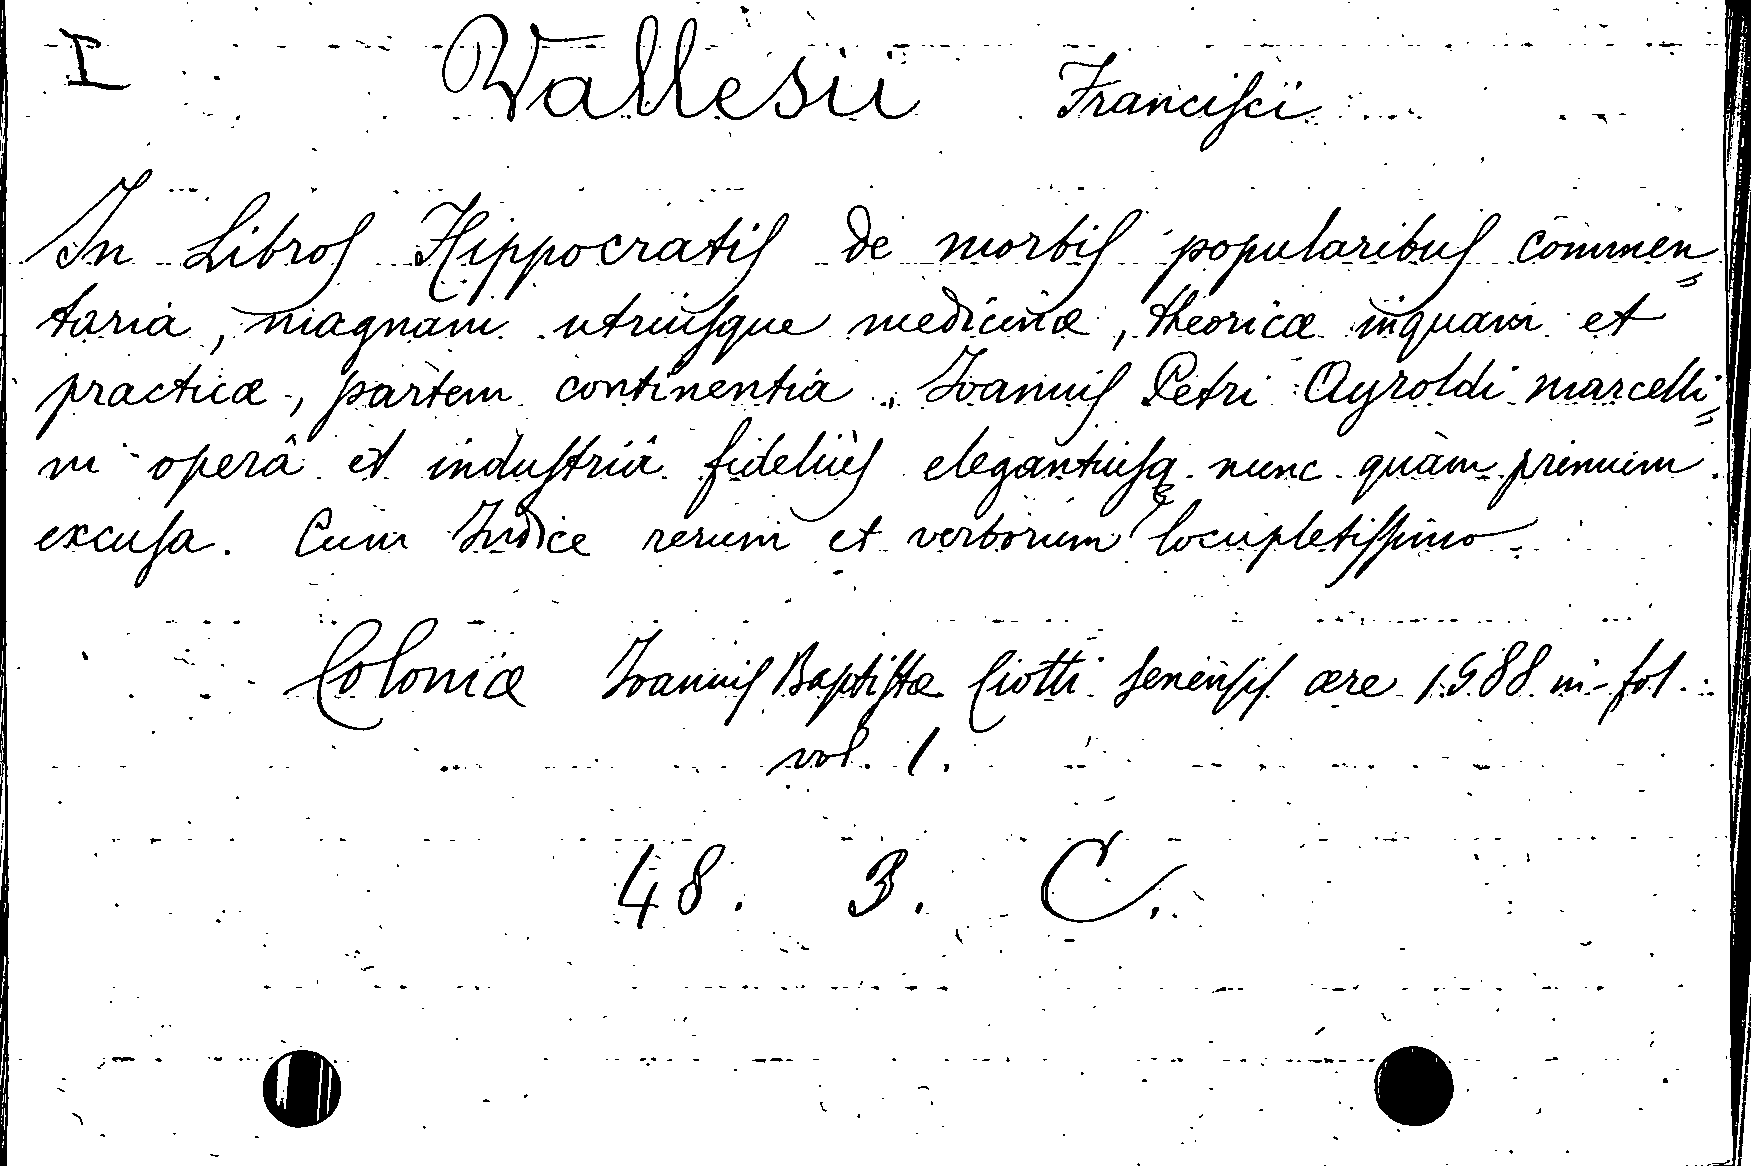 I Vallesii Francisci
In Libros Hippocratis de morbis popularibus commen=
taria, magnam utriusque medicinæ, theoricæ inquam et
practicæ, partem continentia. Ioannis Petri Ayroldi marcelli=
ni operâ et industriâ fideliùs elegantiusq nunc quàm primum
excusa. Cum Indice rerum et verborum locupletissimo.
Coloniæ Ioannis Baptistæ Ciotti senensis ære 1588 in-fol.
vol. 1.
48. 3. C.